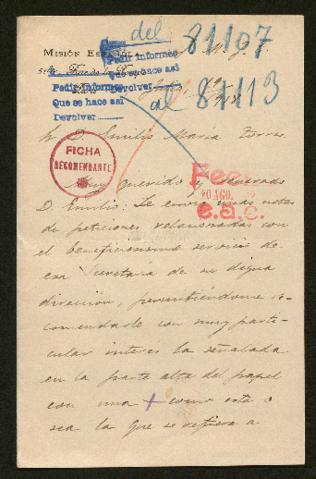 del 81107
MISIÓN
Pedir informes
Que se hace así
Devolver
Pedir Informes
Que se hace así
Devolver
al 81113
D. Emilio María Torres
FICHA
RECOMENDANTE
Fecha
20 AGO.
e.a.c.
Muy querido y
D. Emilio: Le envío unas notas
de peticiones relacionadas con
el beneficiosísimo servicio de
esa Secretaría de su digna
dirección, permitiéndome re-
comendarle con muy parti-
cular interés la señalada
en la parte alta del papel
con una + como esta o
sea la que se refiere a